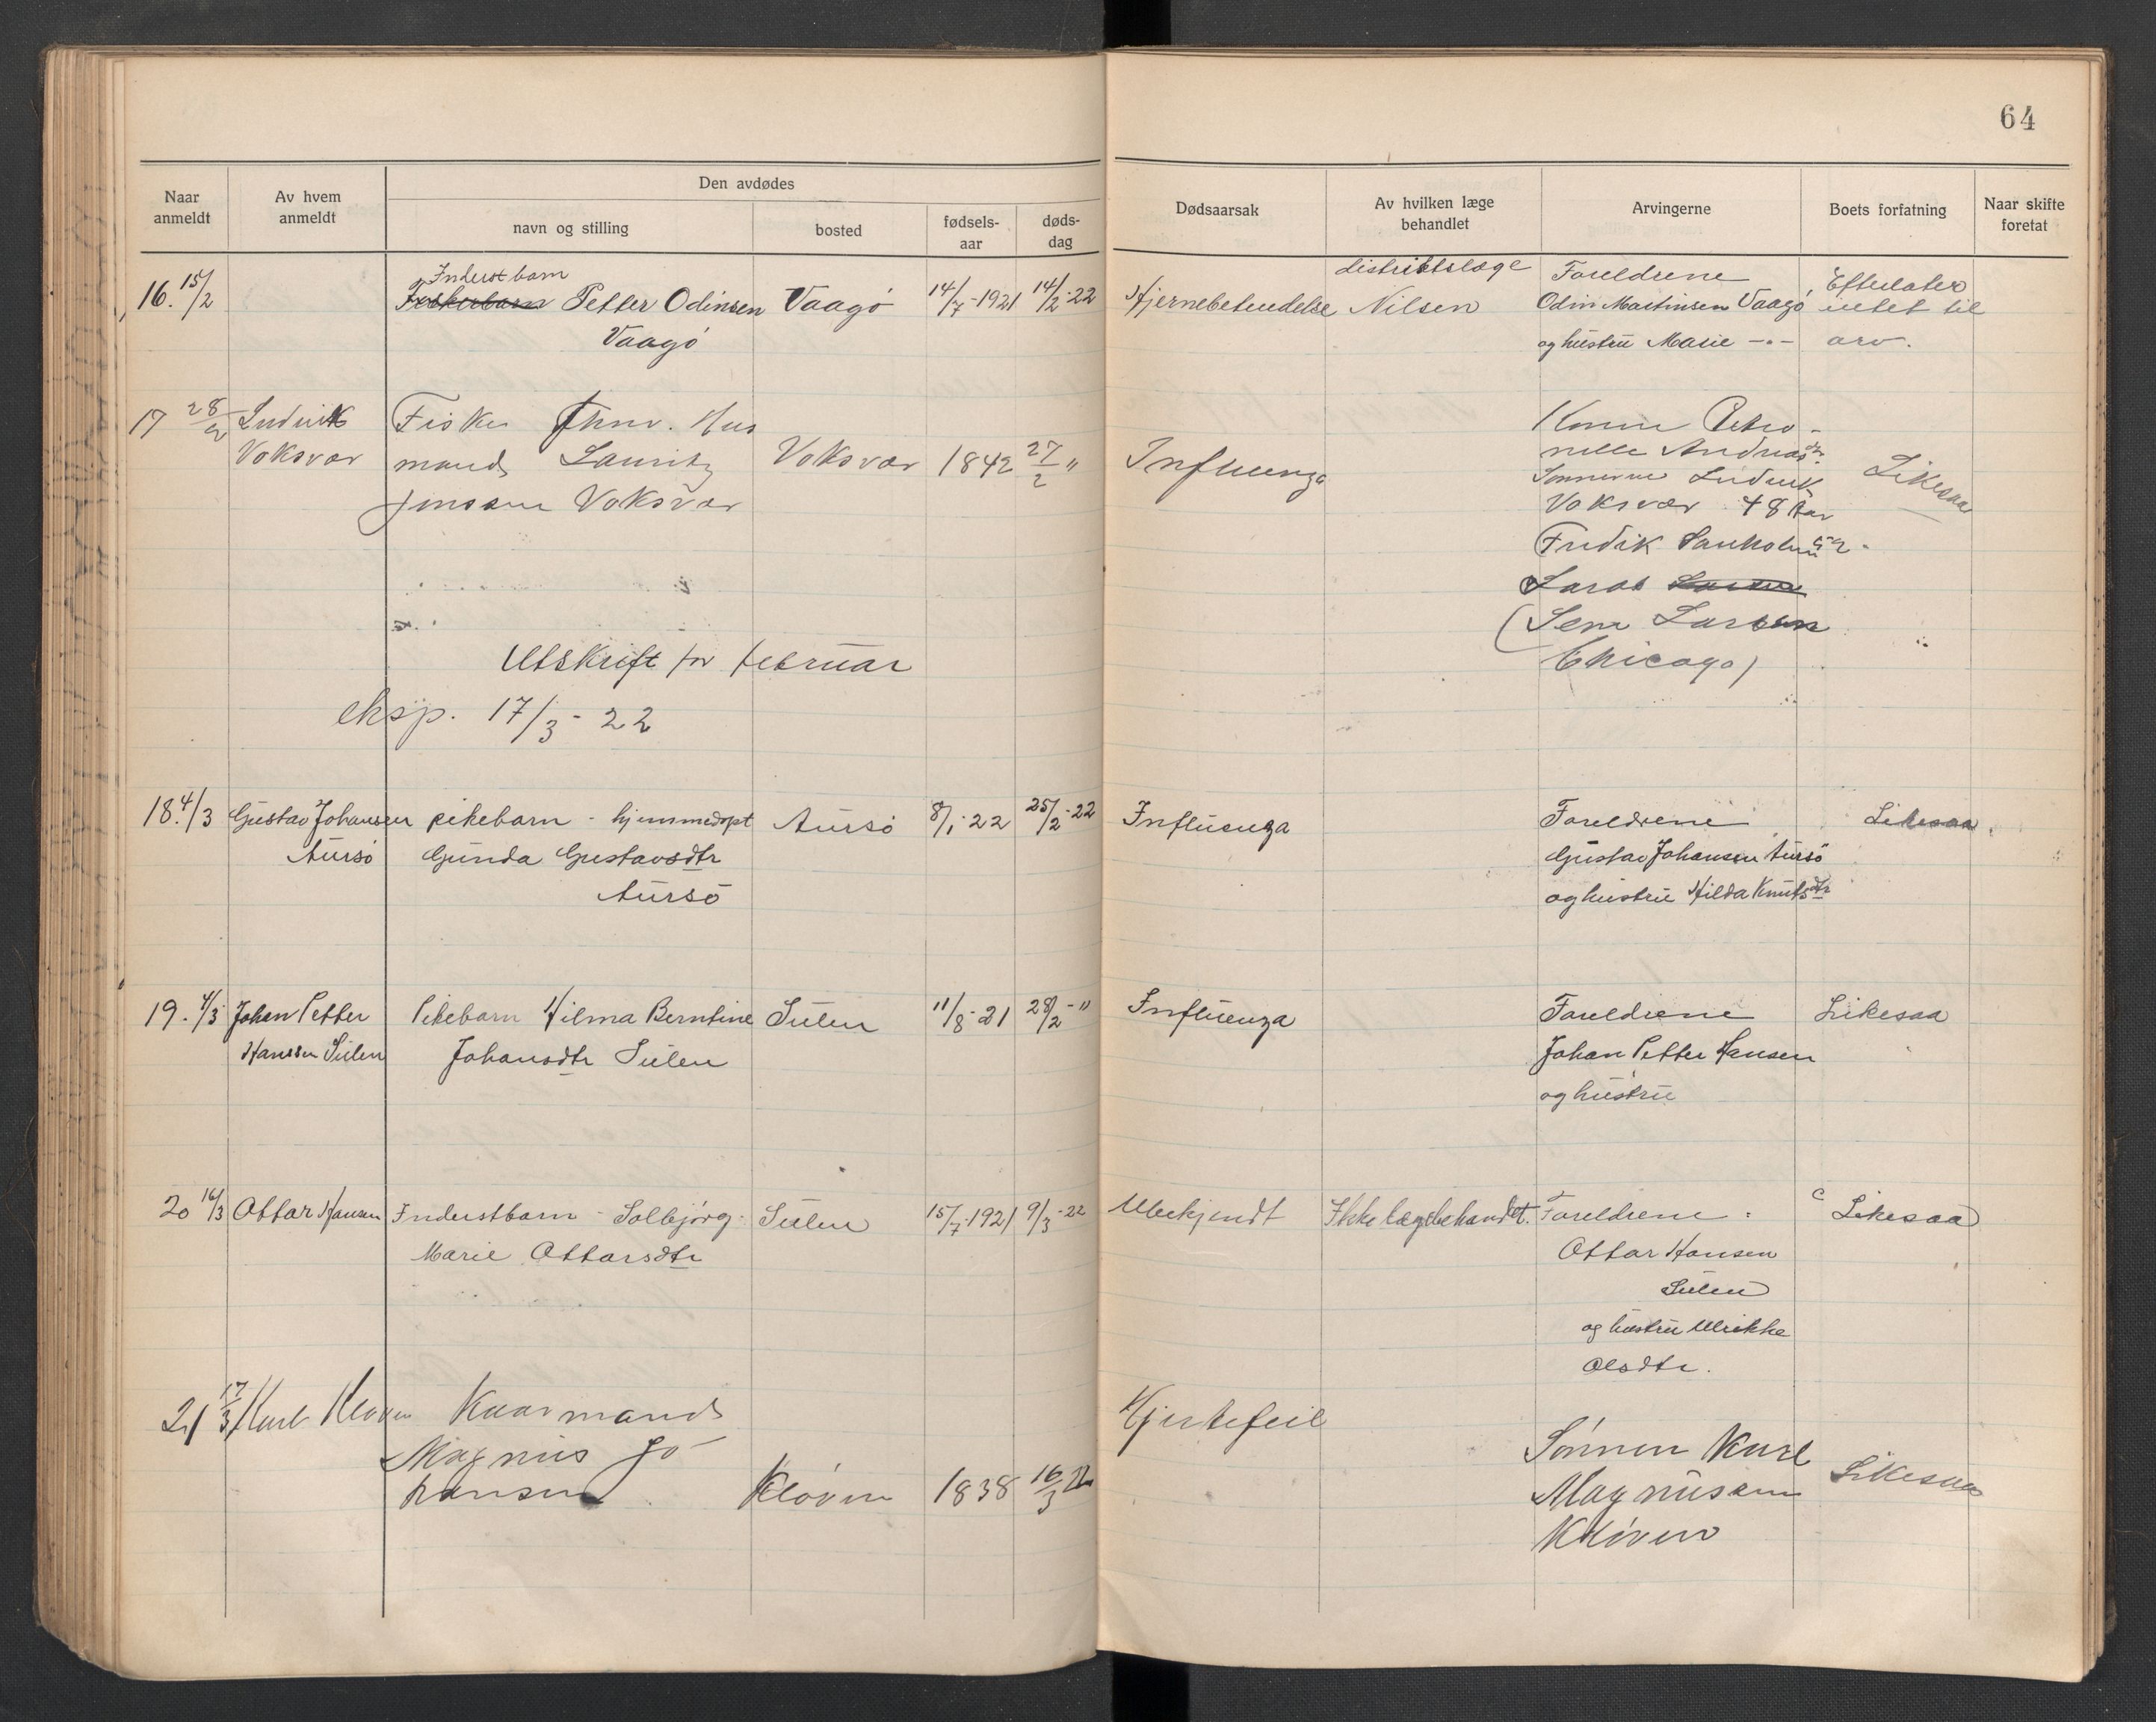 64
Naar anmeldt
Av hvem anmeldt
Den avdødes
navn og stilling
bosted
fødsels-aar
døds-dag
Dødsaarsak
Av hvilken læge behandlet
Arvingerne
Boets forfatning
Naar skifte foretat
16. 15/2
Inderst barn
Petter Odinsen
Vaagø
Vaagø
14/7-1921
14/2-22
Hjernebetendelse
distriktslæge
Nilsen
Foreldrene
Odin Martinsen Vaagø
og hustru Marie -"-
Efterlater
intet til
arv.
17 28/2
Ludvik
Voksvær
Fisker Hus
mand Lauritz
Jenssen Voksvær
Voksvær
1842
27/2 "
Influenza
Konen Petro-
nelle Andreasdtr.
Sønnerne Ludvik
Voksvær 48 Aar
Fredik
Laras
(Lena Larsen
Chicago)
Likesaa
Utskrift for februar
eksp. 17/3 - 22
18. 4/3
Gustav Johansen
Aursø
pikebarn - hjemmedøpt
Gunda Gustavsdtr
Aursø
Aursø
8/1-22
25/2-22
Influenza
Foreldrene
Gustav Johansen Aursø
og hustru Hilda Knutsdtr
Likesaa.
19. 4/3
Johan Petter
Hanssen Sulen
Pikebarn Hilma Berntine
Johansdtr Sulen
Sulen
11/8-21
28/2-"
Influenza
Foreldrene
Johan Petter Hansen
og hustru
Likesaa
20 16/3
Ottar Hansen
Inderstbarn - Solbjørg -
Marie Ottarsdtr
Sulen
15/7-1921
9/3-22
Ubekjendt
Ikke lægebehandlet.
Foreldrene:
Ottar Hansen
Sulen
og hustru Ulrikke
Olsdtr.
Likesaa
21 17/3
Karl Kløven
Kaarmand
Magnus Jo-
hansen
Kløven
1838
16/3 22
Hjertefeil
Sønnen Karl
Magnussen
Kløven
Likesaa